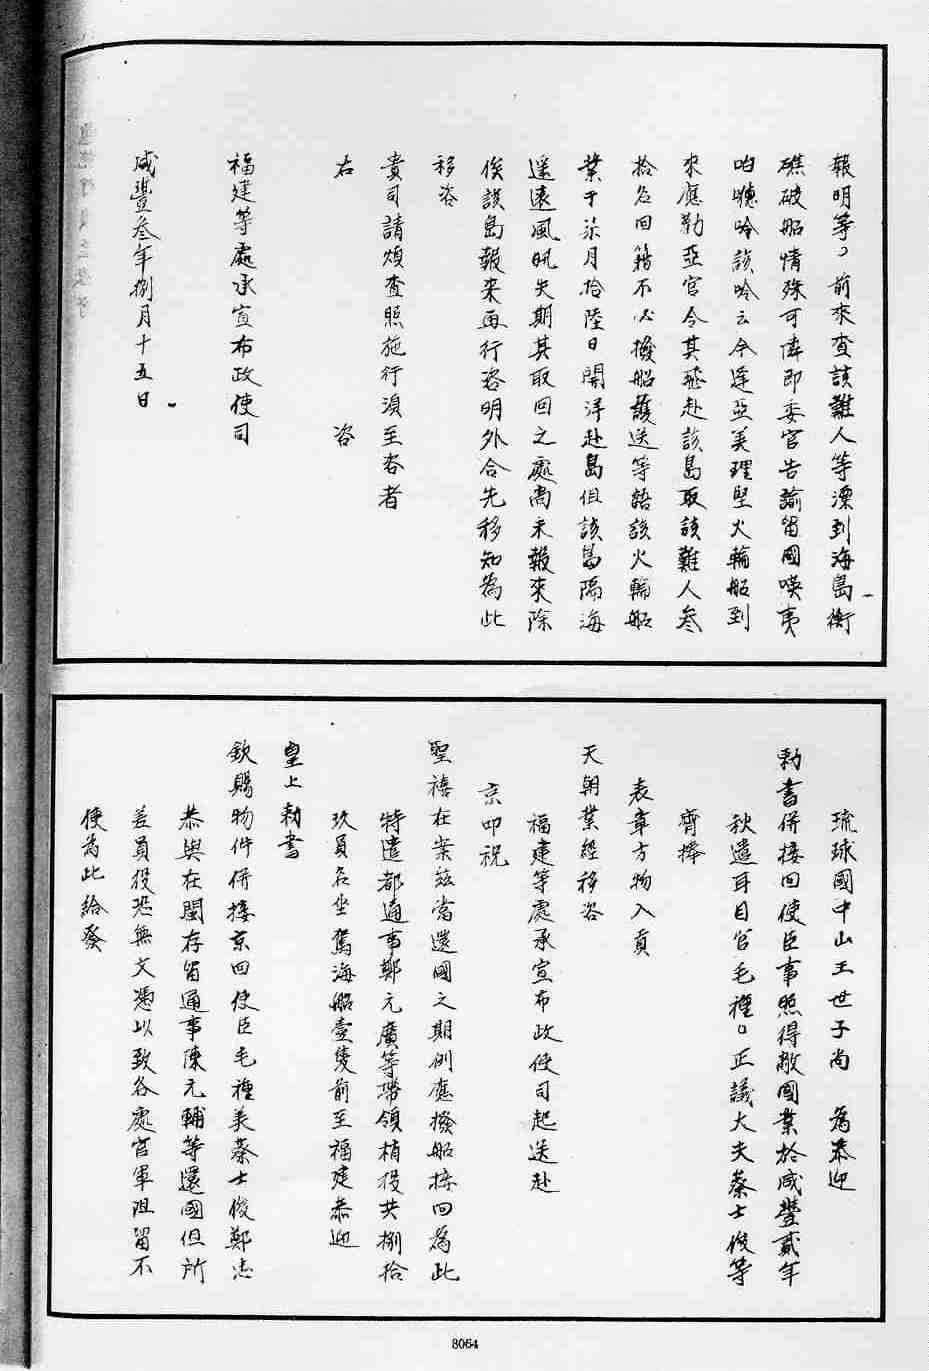 報明等〻前來查該難人等漂到海島衝
礁破船情殊可憐即委官告諭留國嘆夷
咱嗹呤該呤云今逢亞美理堅火輪船到
來應勒亞官令其飛赴該島取該難人叁
拾名回籍不必撥船護送等語該火輪船
業于柒月拾陸日開洋赴島但該島隔海
遥遠風帆失期其取回之處尚未報來除
俟該島報来再行咨明外合先移知為此
移咨
貴司請煩查照施行湏至咨者
右 咨
福建等處承宣布政使司
咸豐叁年捌月十五日
琉球國中山王世子尚 為恭迎
勅書併接回使臣事照得敝國業於咸豐貳年
秋遣耳目官毛種〻正議大夫蔡士俊等
齊捧
表章方物入貢
天朝業經移咨
福建等處承宣布政使司起送赴
京叩祝
聖禧在案茲當還國之期例應撥船接回為此
特遣都通事鄭元廣等帶領梢役共捌拾
玖員名坐駕海船壹隻前至福建恭迎
皇上勅書
欽賜物件併接京回使臣毛種美蔡士俊鄭志
恭與在閩存留通事陳元輔等還國但所
差員役恐無文憑以致各處官軍阻留不
便為此給發
8064